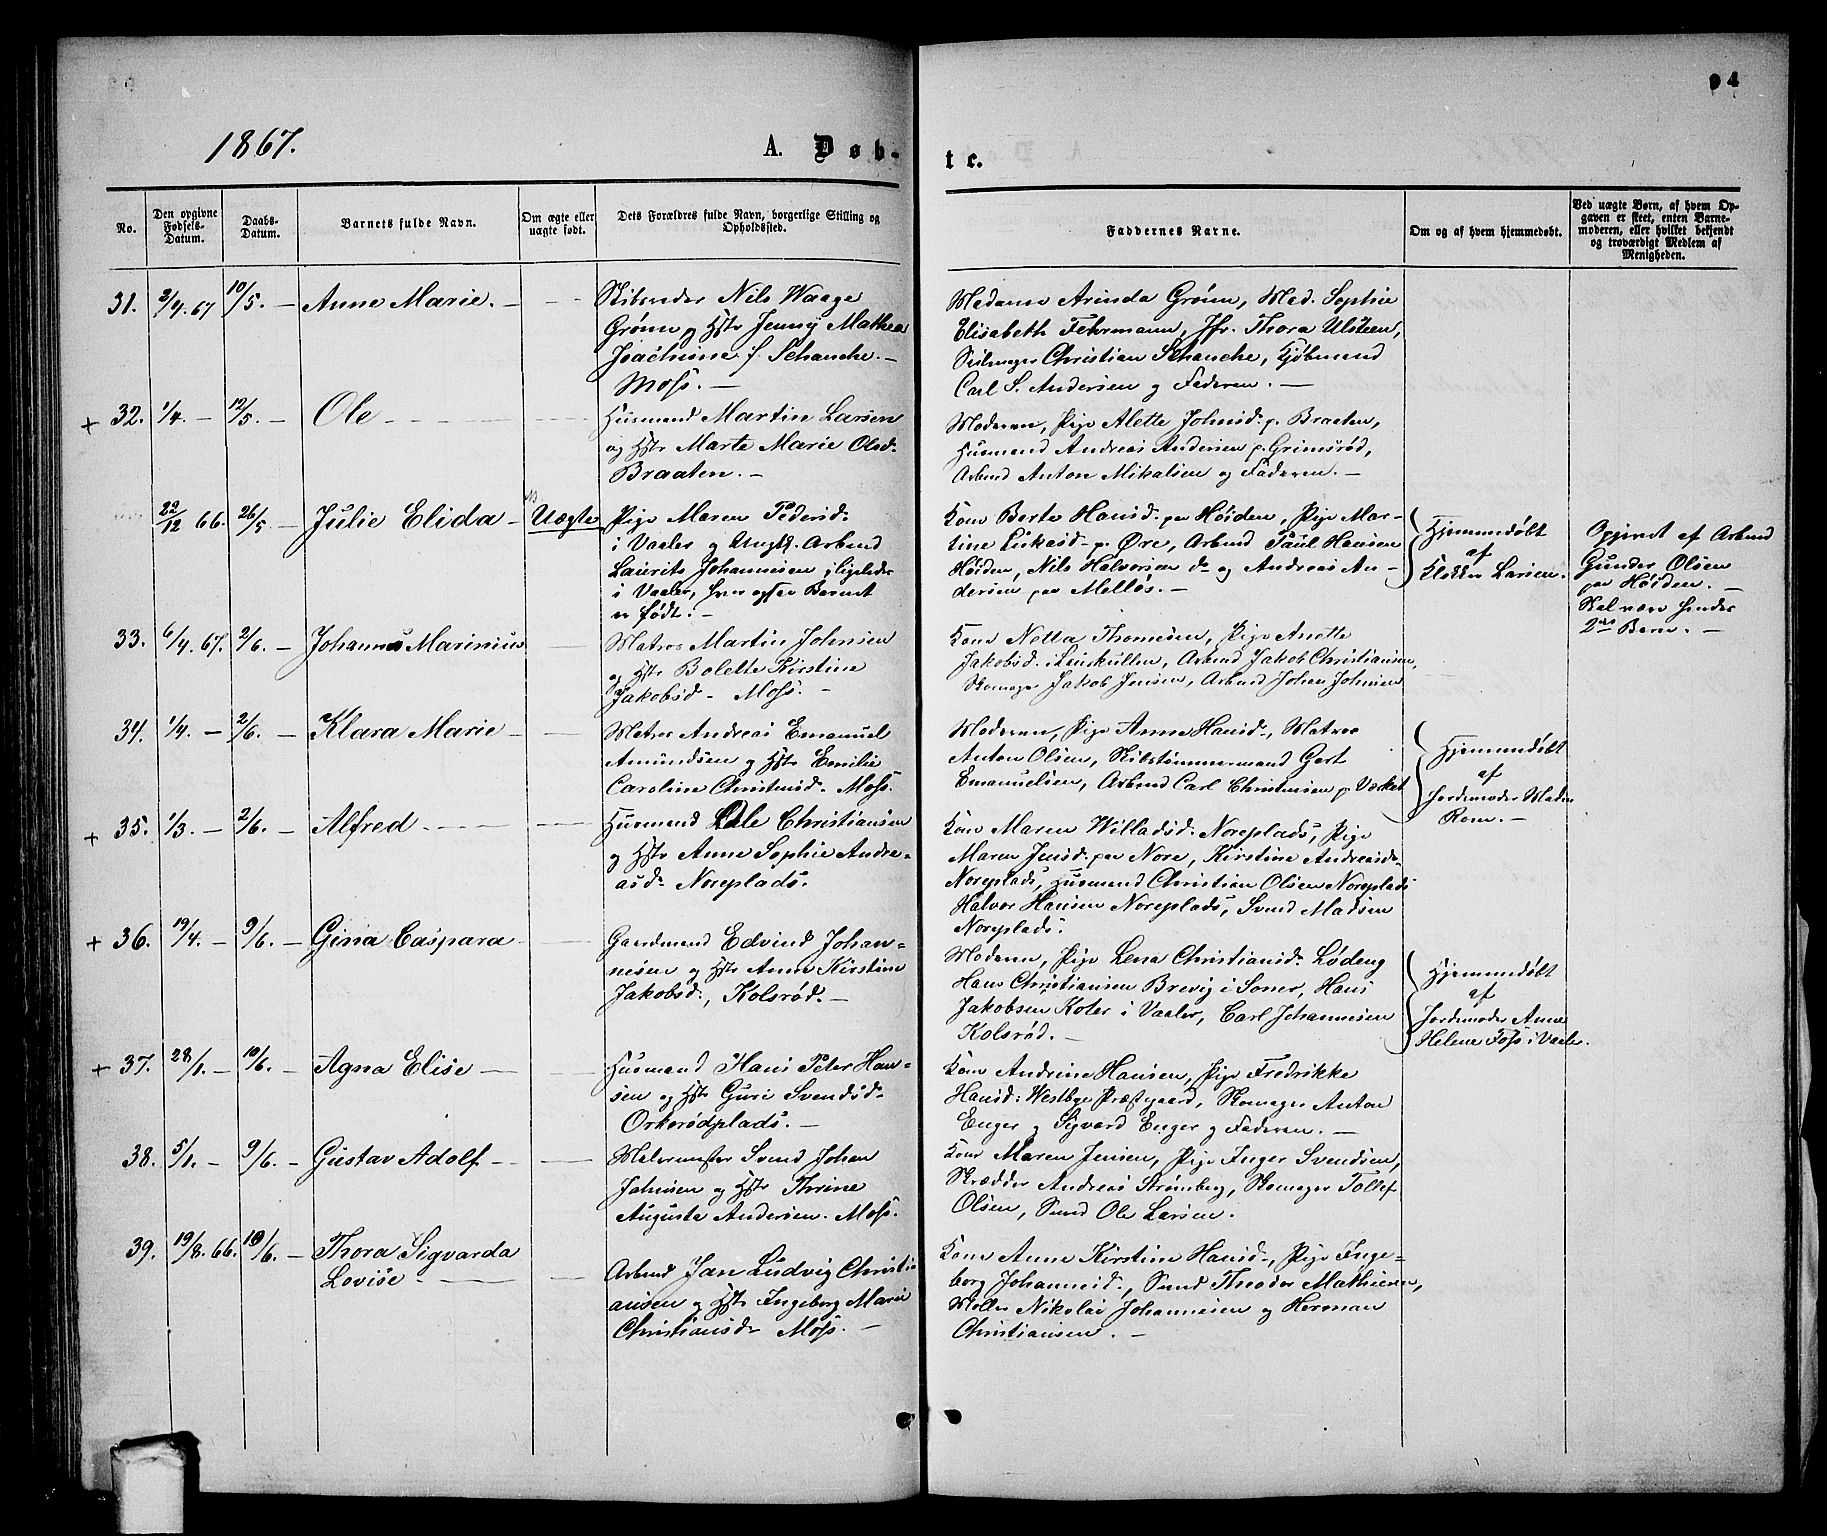 94
1867.
A. Døb-
te.
No.
Den opgivne Fødsels-Datum.
Daabs-Datum.
Barnets fulde Navn.
Om ægte eller uægte født.
Dets Forældres fulde Navn, borgerlige Stilling og Opholdssted.
Faddernes Navne.
Om og af hvem hjemmedøbt.
Ved uægte Børn, af hvem Op-
gaven er skeet, enten Barne-
moderen, eller hvilket bekjendt
og troværdigt Medlem af
Menigheden.
31. 2/4. 67 10/5. — Anne Marie. —
Skibsreder Nils Waage
Grønn og Hstr Jenny Mathea
Joachime f. Schanche. —
Moss. —
Madame Arinda Grønn, Mad. Sophie
Elisabeth Fehrmann, Jfr. Thora Ulsteen,
Seilmager Christian Schanche, Kjøbmand
Carl S. Andersen og Faderen. —
+ 32. 1/4. — 12/5. — Ole
Husmand Martin Larsen
og Hstr Marte Marie Olsd.
Braaten. —
Moderen, Pige Alette Johnsd. p. Braaten,
Husmand Andreas Andersen p. Grimsrød,
Arbmd Anton Mikalsen og Faderen. —
22/12 66. 26/5. — Julie Elida — Uægte
Pige Maren Pedersd.
i Vaaler og Ungk. Arbmd
Laurits Johannesen, ligeledes
i Vaaler, hvor ogsaa Barnet
er født. —
Kone Berte Hansd. paa Høiden, Pige Mar-
tine Lukasd. p. Øre, Arbmd Paul Hansen
Høiden, Nils Halvorsen do og Andreas An-
dersen paa Melløs. —
Hjemmedøbt
af
Klokker Larsen.
Opgivet af Arbmd
Gunder Olsen
paa Høiden. —
Skal være hendes
2det Barn. —
33. 6/4. 67. 2/6. — Johannes Marinius
Matros Martin Johnsen
og Hstr Bolette Kirstine
Jakobsd. Moss. —
Kone Netta Thomesen, Pige Anette
Jakobsd. i Leirskullen, Arbmd Jakob Christiansen,
Skomager Jakob Jensen, Arbmd Johan Johnsen
34. 1/4. — 2/6. — Klara Marie
Matros Andreas Emanuel
Amundsen og Hstr Emilie
Caroline Christensd. Moss.
Moderen, Pige Anne Hansd., Matros
Anton Olsen, Skibstømmermand Gert
Emanuelsen, Arbmd Carl Christensen p. Værket
Hjemmedøbt
af
Jordemoder Madm
Rom. —
+ 35. 1/3. — 2/6. — Alfred
Husmand Ole Christiansen
og Hstr Anne Sophie Andre-
asd. Noreplads.
Kone Maren Willadsd. Noreplads, Pige
Maren Jensd. paa Nore, Kirstine Andreasd.
Noreplads, Husmand Christian Olsen Noreplads
Halvor Hansen Noreplads, Svend Madsen
Noreplads.
+ 36. 19/4. — 9/6. — Gina Caspara
Gaardmand Edvind Johan-
nesen og Hstr Anne Kirstine
Jakobsd., Kolsrød. —
Moderen, Pige Lena Christiansd. Lødeng
Hans Christiansen Brevig i Soner, Hans
Jakobsen Koler i Vaaler, Carl Johannesen
Kolsrød. —
Hjemmedøbt
af
Jordemoder Anne
Helene Foss i Vaaler.
+ 37. 28/1. — 10/6. — Agna Elise —
Husmand Hans Peter Han-
sen og Hstr Guri Svendsd.
Orkerødplads. —
Kone Andrine Hansen, Pige Fredrikke
Hansd: Westbye Præstgaard, Skomager Anton
Enger og Sigvard Enger og Faderen. —
38. 5/1. — 9/6. — Gustav Adolf —
Malermester Svend Johan
Johnsen og Hstr Thrine
Augusta Andersen. Moss.
Kone Maren Jensen, Pige Inger Svendsen,
Skrædder Andreas Strømberg, Skomager Tollef
Olsen, Smed Ole Larsen.
39. 19/8. 66. 10/6. — Thora Sigvarda
Lovise —
Arbmd Jan Ludvig Christi-
ansen og Hstr Ingeborg Marie
Christiansd. Moss. —
Kone Anne Kirstine Hansd., Pige Inge-
borg Johannesd., Smed Theodor Mathiesen,
Møller Nikolai Johannesen og Herman
Christiansen. —